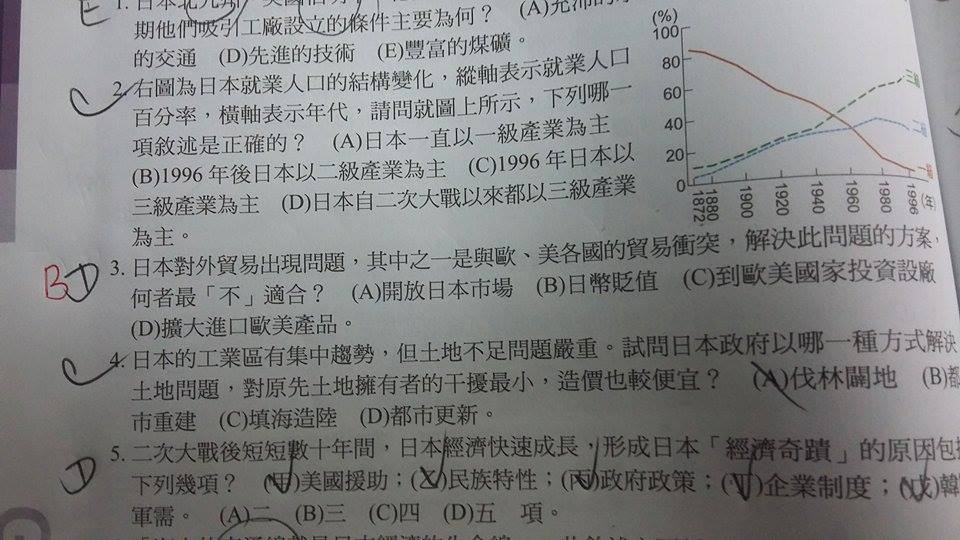 期他們吸引工廠設立的條件主要為何？ (A)充沛的
的交通 (D)先進的技術 (E)豐富的煤礦。
C 2. 右圖為日本就業人口的結構變化，縱軸表示就業人口
百分率，橫軸表示年代，請問就圖上所示，下列哪一
項敘述是正確的？ (A)日本一直以一級產業為主
(B)1996 年後日本以二級產業為主 (C)1996 年日本以
三級產業為主 (D)日本自二次大戰以來都以三級產業
為主。
(%)
100
80
60
40
20
0
1872
1880
1900
1920
1940
1960
1980
1996
(年)
B D 3. 日本對外貿易出現問題，其中之一是與歐、美各國的貿易衝突，解決此問題的方案，
何者最「不」適合？ (A)開放日本市場 (B)日幣貶值 (C)到歐美國家投資設廠
(D)擴大進口歐美產品。
C 4. 日本的工業區有集中趨勢，但土地不足問題嚴重。試問日本政府以哪一種方式解決
土地問題，對原先土地擁有者的干擾最小，造價也較便宜？ (A)伐林闢地 (B)都
市重建 (C)填海造陸 (D)都市更新。
D 5. 二次大戰後短短數十年間，日本經濟快速成長，形成日本「經濟奇蹟」的原因包
下列幾項？ (甲)美國援助；(乙)民族特性；(丙)政府政策；(丁)企業制度；(戊)韓
軍需。 (A)二 (B)三 (C)四 (D)五 項。